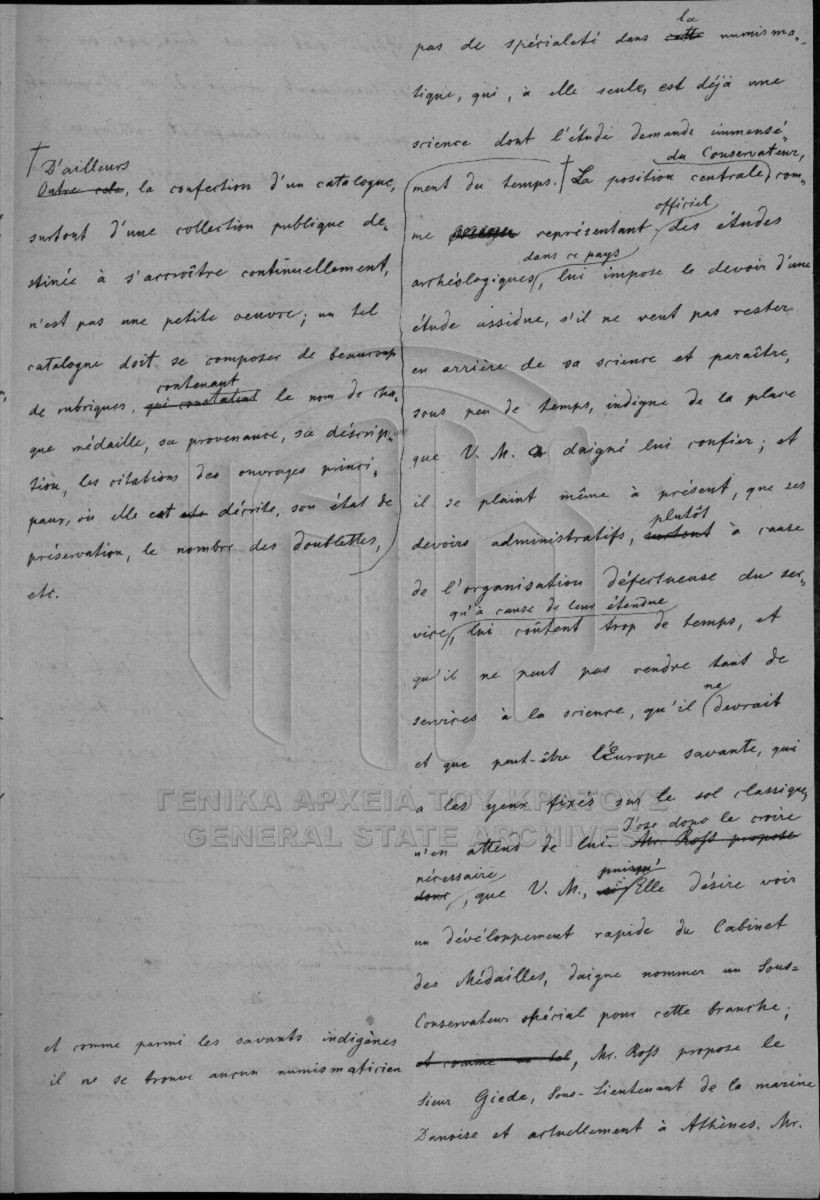 † D'ailleurs
Outre cela, la confection d'un catalogue,
surtout d'une collection publique de-
stinée à s'accroître continuellement,
n'est pas une petite oeuvre; un tel
catalogue doit se composer de beaucoup
contenant
de rubriques, qui constatent le nom de cha-
que médaille, sa provenance, sa déscrip-
tion, les citations des ouvrages princi-
paux, où elle est décrite, son état de
préservation, le nombre des doublettes,
etc.
et comme parmi les savants indigènes
il ne se trouve aucun numismaticien
la
pas de spécialeté dans cette numisma-
tique, qui, à elle seule, est déjà une
science dont l'étude demande immensé-
du Conservateur,
ment du temps. † La position centrale com-
officiel
me représentant des études
dans ce pays
archéologiques, lui impose le devoir d'une
étude assidue, s'il ne veut pas rester
en arrière de sa science et paraître,
sous peu de temps, indigne de la place
que V. M. a daigné lui confier; et
il se plaint même à présent, que ses
plutôt
devoirs administratifs, surtout à cause
de l'organisation défectueuse du ser-
qu'à cause de leur étendue
vice, lui coûtent trop de temps, et
qu'il ne peut pas rendre tant de
ne
services à la science, qu'il devrait
et que peut-être l'Europe savante, qui
a les yeux fixés sur le sol classique,
J'ose donc le croire
n'en attend de lui. Mr. Ross propose
nécessaire puisqu'
donc, que V. M., si Elle désire voir
un dévéloppement rapide du Cabinet
des Médailles, daigne nommer un Sous-
Conservateur spécial pour cette branche;
et comme un tel, Mr. Ross propose le
Sieur Giede, Sous-Lieutenant de la marine
Danoise et actuellement à Athènes. Mr.
ΓΕΝΙΚΑ ΑΡΧΕΙΑ ΤΟΥ ΚΡΑΤΟΥΣ
GENERAL STATE ARCHIVES